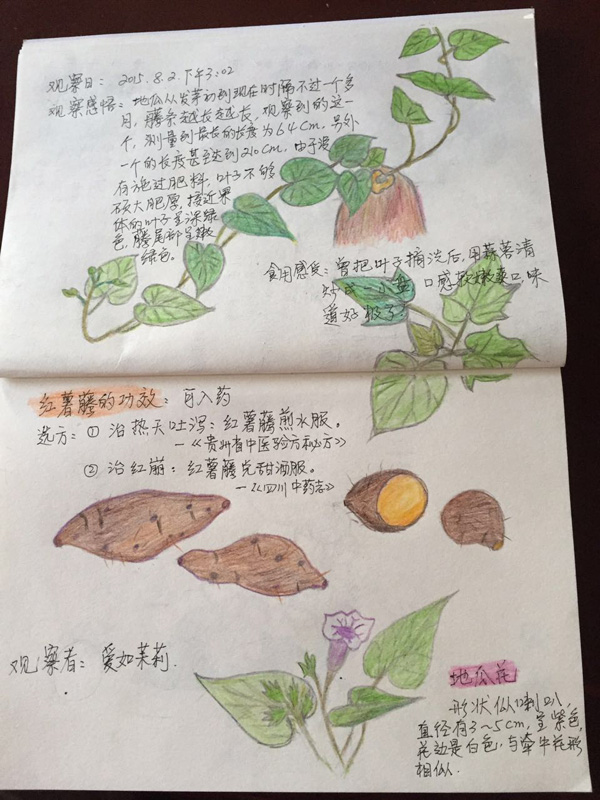 观察日: 2015.8.2.下午3:02
观察感悟: 地瓜从发芽初到现在时隔不过一个多
月, 藤条越长越长, 观察到的这一
个, 测量到最长的长度为64cm, 另外
一个的长度甚至达到210cm, 由于没
有施过肥料, 叶子不够
硕大肥厚, 接近果
体的叶子呈深绿
色, 藤尾部呈嫩
绿色。
食用感受: 曾把叶子摘洗后, 用蒜蓉清
炒成一小盘 口感软嫩爽口, 味
道好极了
红薯藤的功效: 可入药
选方: ① 治热天吐泻: 红薯藤煎水服。
—《贵州省中医验方秘方》
② 治红崩: 红薯藤兑甜酒服。
—《四川中药志》
观察者: 爱如茉莉.
地瓜花
形状似喇叭,
直径有3~5cm, 呈紫色,
花边是白色, 与牵牛花形
相似.